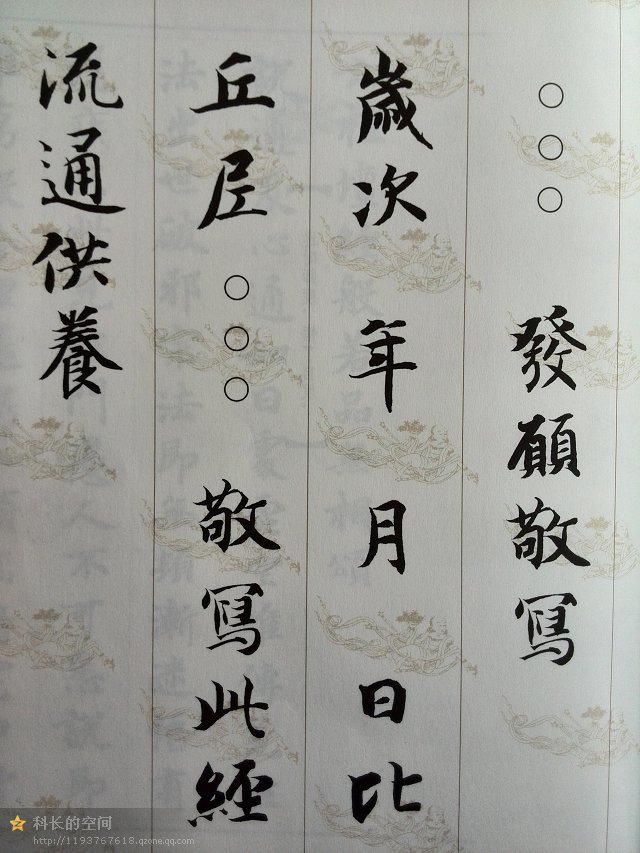 ○○○ 發願敬寫
歲次 年 月 日比
丘尼 ○○○ 敬寫此經
流通供養
科长的空间
http://1193767618.qzone.qq.com